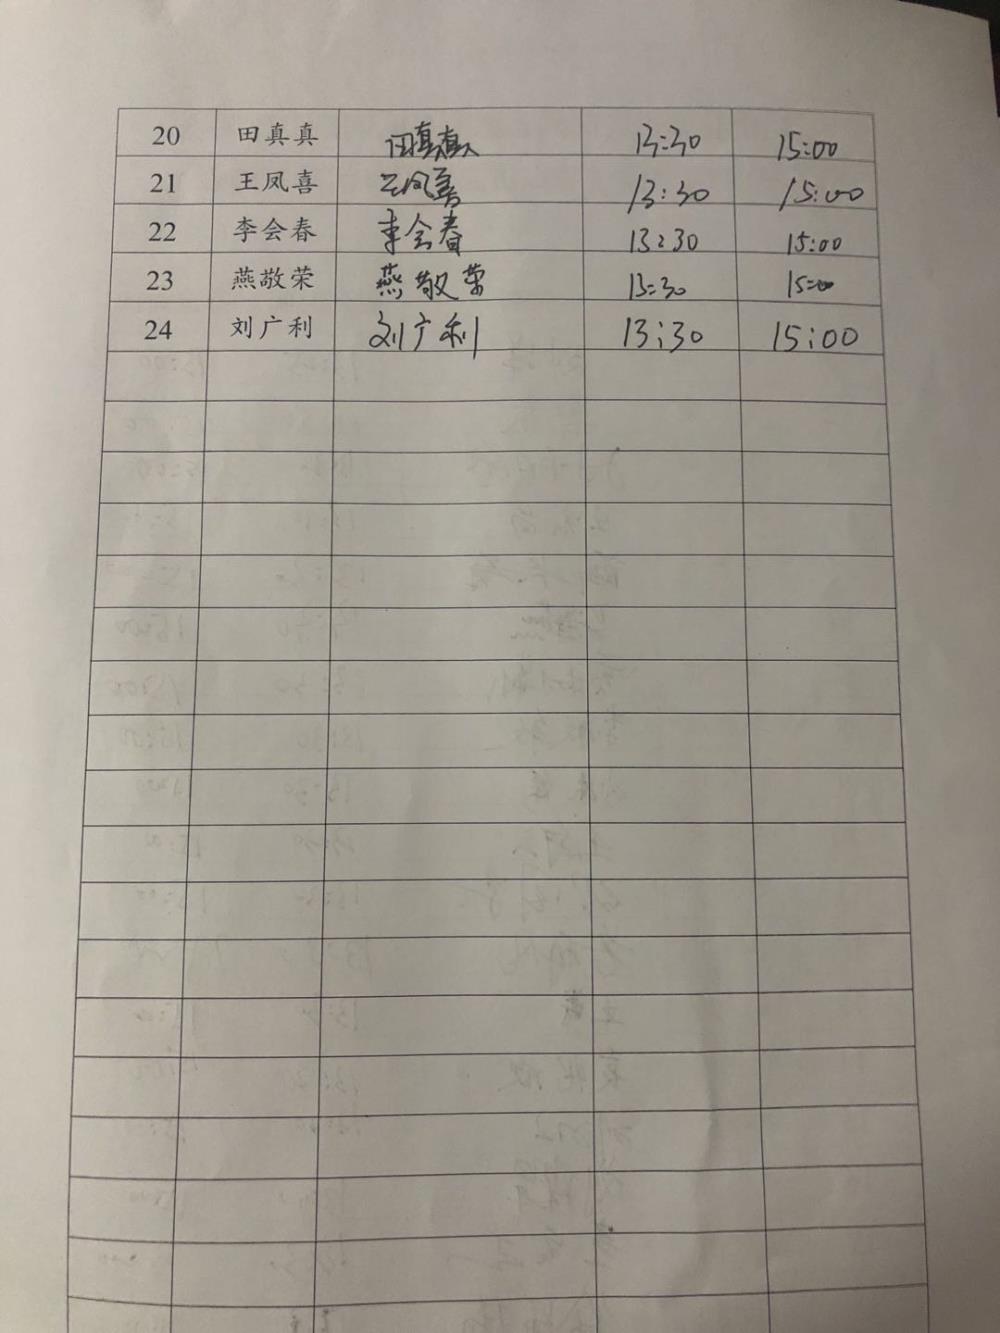 20 田真真 田真真 13:30 15:00
21 王凤喜 王凤喜 13:30 15:00
22 李会春 李会春 13:30 15:00
23 燕敬荣 燕敬荣 13:30 15:00
24 刘广利 刘广利 13:30 15:00